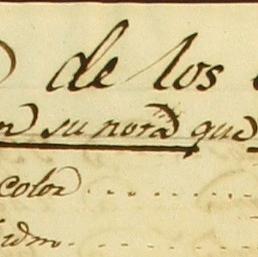 de los
su nota que
color
idm.